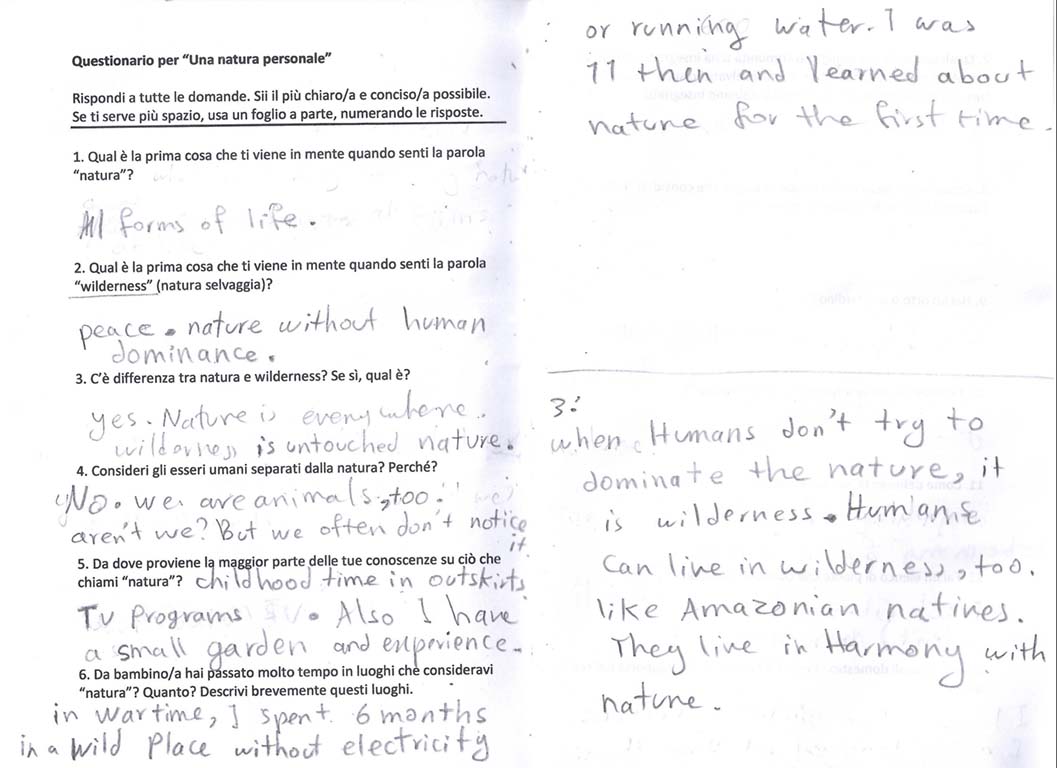 Questionario per “Una natura personale”
Rispondi a tutte le domande. Sii il più chiaro/a e conciso/a possibile.
Se ti serve più spazio, usa un foglio a parte, numerando le risposte.
1. Qual è la prima cosa che ti viene in mente quando senti la parola
“natura”?
All forms of life.
2. Qual è la prima cosa che ti viene in mente quando senti la parola
“wilderness” (natura selvaggia)?
peace. nature without human
dominance.
3. C’è differenza tra natura e wilderness? Se sì, qual è?
yes. Nature is everywhere.
wilderness is untouched nature.
4. Consideri gli esseri umani separati dalla natura? Perché?
"No. we are animals, too."
aren't we? But we often don't notice
it
5. Da dove proviene la maggior parte delle tue conoscenze su ciò che
chiami “natura”? childhood time in outskirts
TV Programs. Also I have
a small garden and experience.
6. Da bambino/a hai passato molto tempo in luoghi che consideravi
“natura”? Quanto? Descrivi brevemente questi luoghi.
in war time, I spent 6 months
in a wild place without electricity
or running water. I was
11 then and learned about
nature for the first time.
3:
when Humans don't try to
dominate the nature, it
is wilderness. Humans
can live in wilderness, too.
like Amazonian natives.
They live in Harmony with
nature.